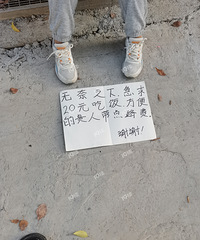 无奈之下.急求
20元吃饭方便
的是人帮点路费.
谢谢!